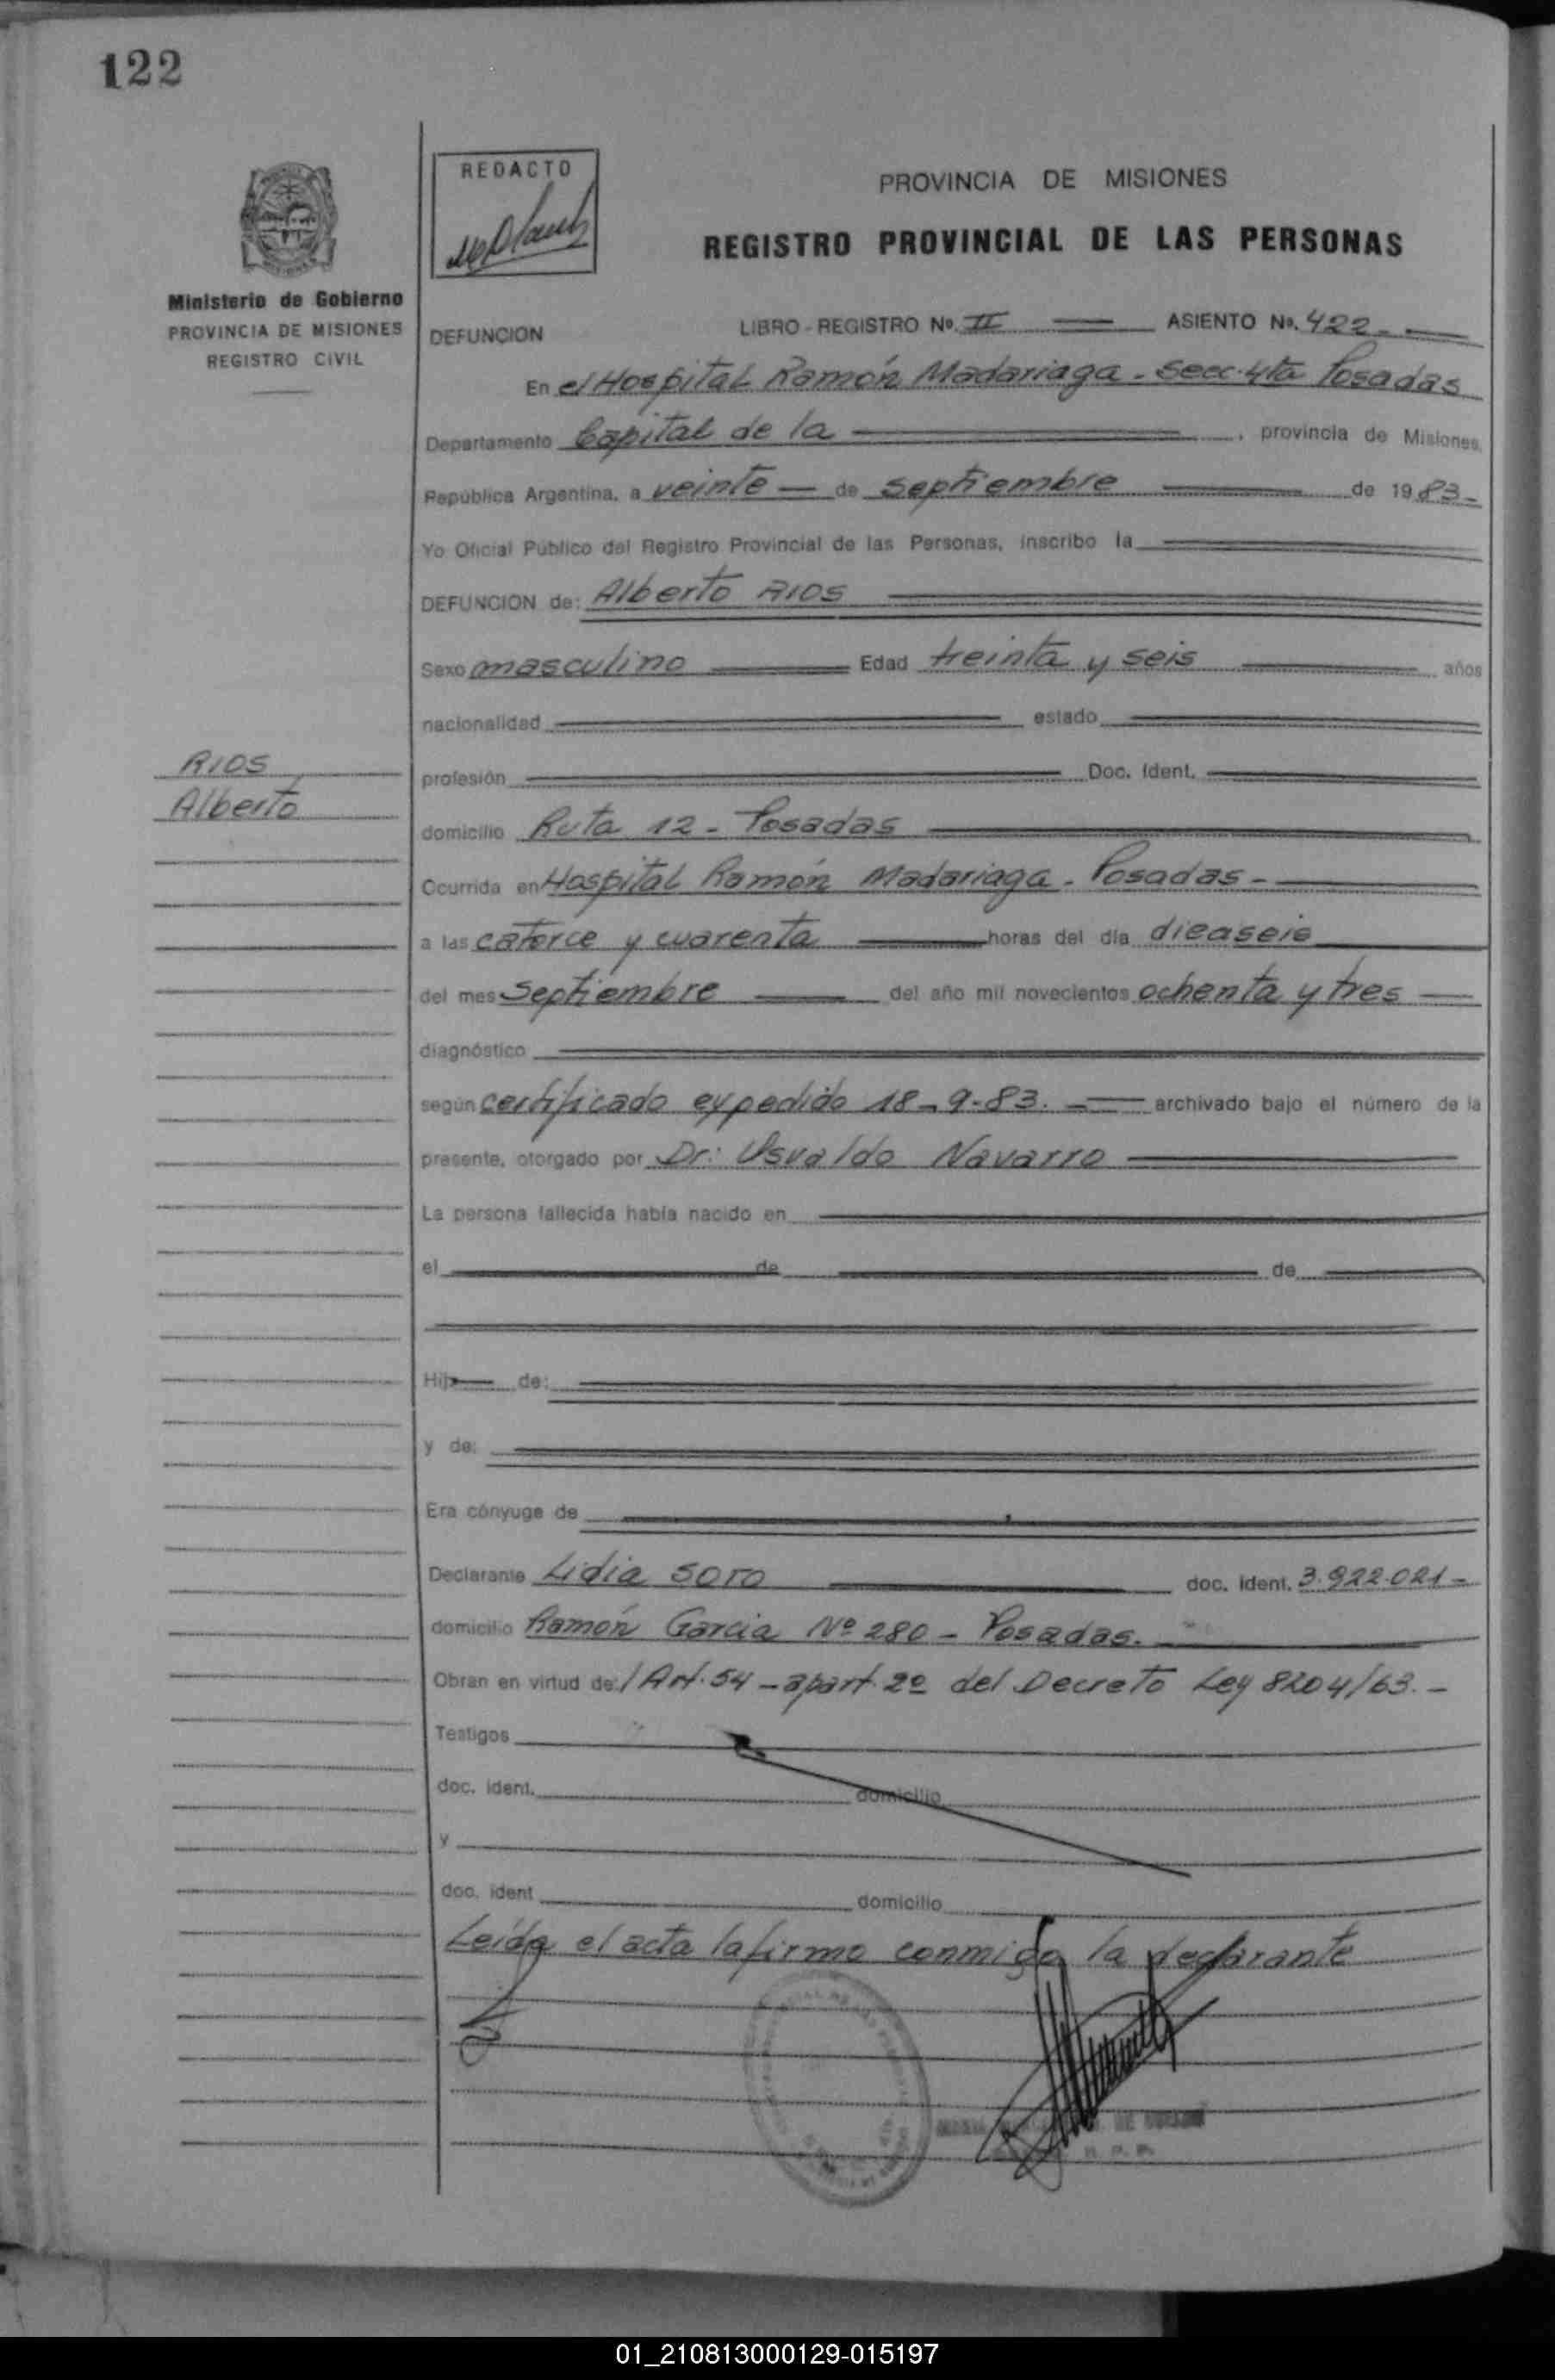 122
REDACTO
PROVINCIA DE MISIONES
REGISTRO PROVINCIAL DE LAS PERSONAS
Ministerio de Gobierno
PROVINCIA DE MISIONES
REGISTRO CIVIL
DEFUNCION LIBRO - REGISTRO No. II ASIENTO No. 422-
En el Hospital Ramón Madariaga - Secc. 4ta Posadas
Departamento Capital de la , provincia de Misiones,
República Argentina, a veinte de septiembre de 1983-
Yo Oficial Público del Registro Provincial de las Personas, inscribo la
DEFUNCION de: Alberto RIOS
Sexo masculino Edad treinta y seis años
nacionalidad estado
RIOS
Alberto
profesión Doc. Ident.
domicilio Ruta 12 - Posadas
Ocurrida en Hospital Ramón Madariaga - Posadas -
a las catorce y cuarenta horas del día dieaseis
del mes septiembre del año mil novecientos ochenta y tres
diagnóstico
según certificado expedido 18-9-83. archivado bajo el número de la
presente, otorgado por Dr: Osvaldo Navarro
La persona fallecida había nacido en
el de de
Hijo de:
y de:
Era cónyuge de
Declarante Lidia SOTO doc. ident. 3.922.021-
domicilio Ramón Garcia Nº 280 - Posadas.
Obran en virtud de: / Art. 54 - apart. 2º del Decreto Ley 8204/63. -
Testigos
doc. ident. domicilio
y
doc. ident domicilio
Leída el acta la firma conmigo la declarante
01_210813000129-015197